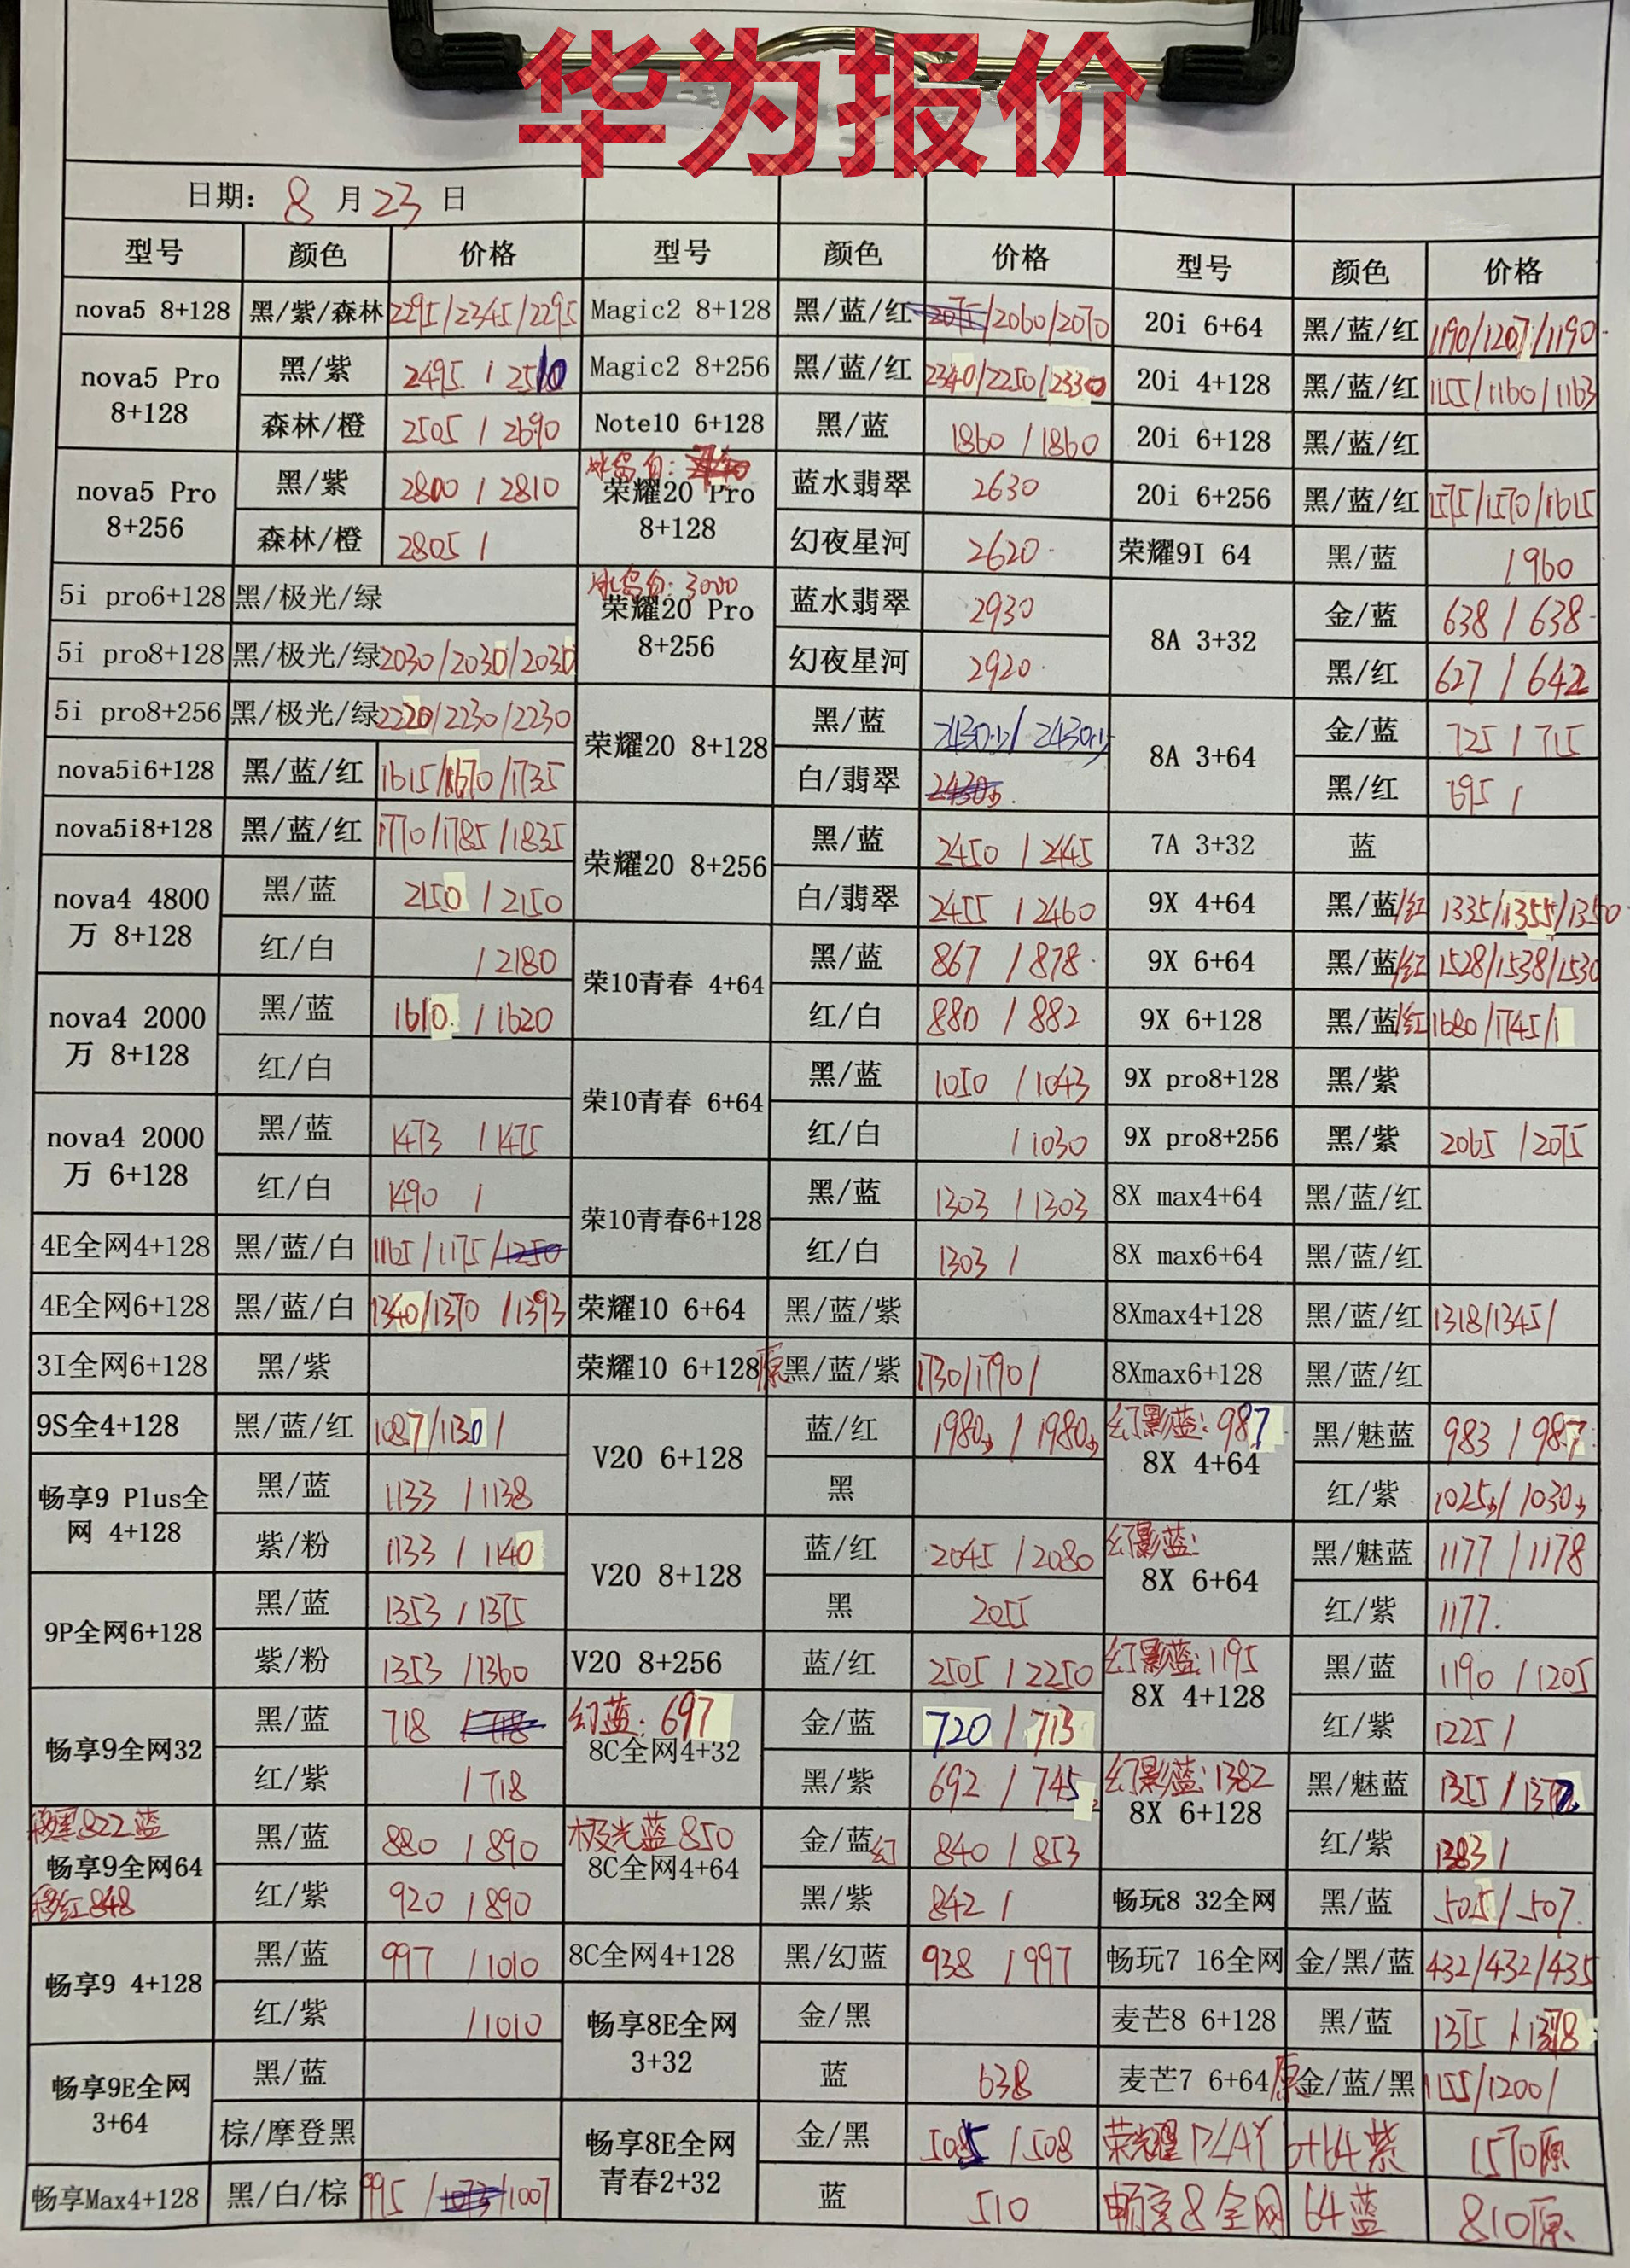 华为报价
日期: 8 月 23 日
型号 颜色 价格 型号 颜色 价格 型号 颜色 价格
nova5 8+128 黑/紫/森林 2295/2345/2295
nova5 Pro 8+128 黑/紫 2495 / 2510
森林/橙 2505 / 2690
nova5 Pro 8+256 黑/紫 2800 / 2810
森林/橙 2805 /
5i pro6+128 黑/极光/绿
5i pro8+128 黑/极光/绿 2030/2030/2030
5i pro8+256 黑/极光/绿 2220/2230/2230
nova5i6+128 黑/蓝/红 1615/1670/1735
nova5i8+128 黑/蓝/红 1770/1785/1835
nova4 4800万 8+128 黑/蓝 2150 / 2150
红/白 / 2180
nova4 2000万 8+128 黑/蓝 1610 / 1620
红/白
nova4 2000万 6+128 黑/蓝 1473 / 1475
红/白 1490 /
4E全网4+128 黑/蓝/白 1165/1175/1250
4E全网6+128 黑/蓝/白 1340/1370 /1393
3I全网6+128 黑/紫
9S全4+128 黑/蓝/红 1087/1130/
畅享9 Plus全网 4+128 黑/蓝 1133 / 1138
紫/粉 1133 / 1140
9P全网6+128 黑/蓝 1353 / 1375
紫/粉 1353 / 1360
畅享9全网32 黑/蓝 718
红/紫 / 718
移黑822蓝
畅享9全网64 黑/蓝 880 / 890
移红848
红/紫 920 / 890
畅享9 4+128 黑/蓝 997 / 1010
红/紫 / 1010
畅享9E全网 3+64 黑/蓝
棕/摩登黑
畅享Max4+128 黑/白/棕 995 / /1007
Magic2 8+128 黑/蓝/红 2075/2060/2070
Magic2 8+256 黑/蓝/红 2340/2250/2330
Note10 6+128 黑/蓝 1860 / 1860
冰岛白:
荣耀20 Pro 8+128 蓝水翡翠 2630
幻夜星河 2620
冰岛白: 3000
荣耀20 Pro 8+256 蓝水翡翠 2930
幻夜星河 2920
荣耀20 8+128 黑/蓝 2430少/ 2430少
白/翡翠 2430少
荣耀20 8+256 黑/蓝 2450 / 2445
白/翡翠 2455 / 2460
荣10青春 4+64 黑/蓝 867 / 878
红/白 880 / 882
荣10青春 6+64 黑/蓝 1050 / 1043
红/白 / 1030
荣10青春6+128 黑/蓝 1303 / 1303
红/白 1303 /
荣耀10 6+64 黑/蓝/紫
荣耀10 6+128原 黑/蓝/紫 1730/1790/
V20 6+128 蓝/红 1980少 / 1980少
黑
V20 8+128 蓝/红 2045 / 2080
黑 2055
V20 8+256 蓝/红 2505 / 2250
幻蓝: 697
8C全网4+32 金/蓝 720 / 713
黑/紫 692 / 745
极光蓝850
8C全网4+64 金/蓝幻 840 / 853
黑/紫 842 /
8C全网4+128 黑/幻蓝 938 / 997
畅享8E全网 3+32 金/黑
蓝 638
畅享8E全网青春2+32 金/黑 505 / 508
蓝 510
20i 6+64 黑/蓝/红 1190/1207/1190
20i 4+128 黑/蓝/红 1155/1160/1163
20i 6+128 黑/蓝/红
20i 6+256 黑/蓝/红 1575/1570/1615
荣耀9I 64 黑/蓝 / 960
8A 3+32 金/蓝 638 / 638
黑/红 627 / 642
8A 3+64 金/蓝 725 / 715
黑/红 695 /
7A 3+32 蓝
9X 4+64 黑/蓝/红 1335/1355/1350
9X 6+64 黑/蓝/红 1528/1538/1530
9X 6+128 黑/蓝/红 1680/1745/1
9X pro8+128 黑/紫
9X pro8+256 黑/紫 2065 / 2075
8X max4+64 黑/蓝/红
8X max6+64 黑/蓝/红
8Xmax4+128 黑/蓝/红 1318/1345/
8Xmax6+128 黑/蓝/红
幻影蓝: 987
8X 4+64 黑/魅蓝 983 / 987
红/紫 1025少/ 1030少
幻影蓝:
8X 6+64 黑/魅蓝 1177 / 1178
红/紫 1177.
幻影蓝: 1195
8X 4+128 黑/蓝 1190 / 1205
红/紫 1225 /
幻影蓝: 1382
8X 6+128 黑/魅蓝 1355 / 1372
红/紫 1383 /
畅玩8 32全网 黑/蓝 505 / 507
畅玩7 16全网 金/黑/蓝 432/432/435
麦芒8 6+128 黑/蓝 1375 / 1378
麦芒7 6+64原 金/蓝/黑 1155/1200/
荣耀PLAY 6+64紫 1570原
畅享8全网 64蓝 810原